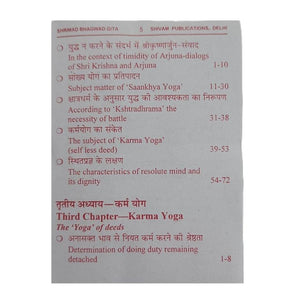 SHRIMAD BHAGWAD GITA 5 SHIVAM PUBLICATIONS, DELHI
❍ युद्ध न करने के संदर्भ में श्रीकृष्णार्जुन-संवाद
In the context of timidity of Arjuna-dialogs
of Shri Krishna and Arjuna 1-10
❍ सांख्य योग का प्रतिपादन
Subject matter of 'Saankhya Yoga' 11-30
❍ क्षात्रधर्म के अनुसार युद्ध की आवश्यकता का निरूपण
According to 'Kshtradirama' the
necessity of battle 31-38
❍ कर्मयोग का संकेत
The subject of 'Karma Yoga'
(self less deed) 39-53
❍ स्थितप्रज्ञ के लक्षण
The characteristics of resolute mind and
its dignity 54-72
तृतीय अध्याय—कर्म योग
Third Chapter—Karma Yoga
The 'Yoga' of deeds
❍ अनासक्त भाव से नियत कर्म करने की श्रेष्ठता
Determination of doing duty remaining
detached 1-8